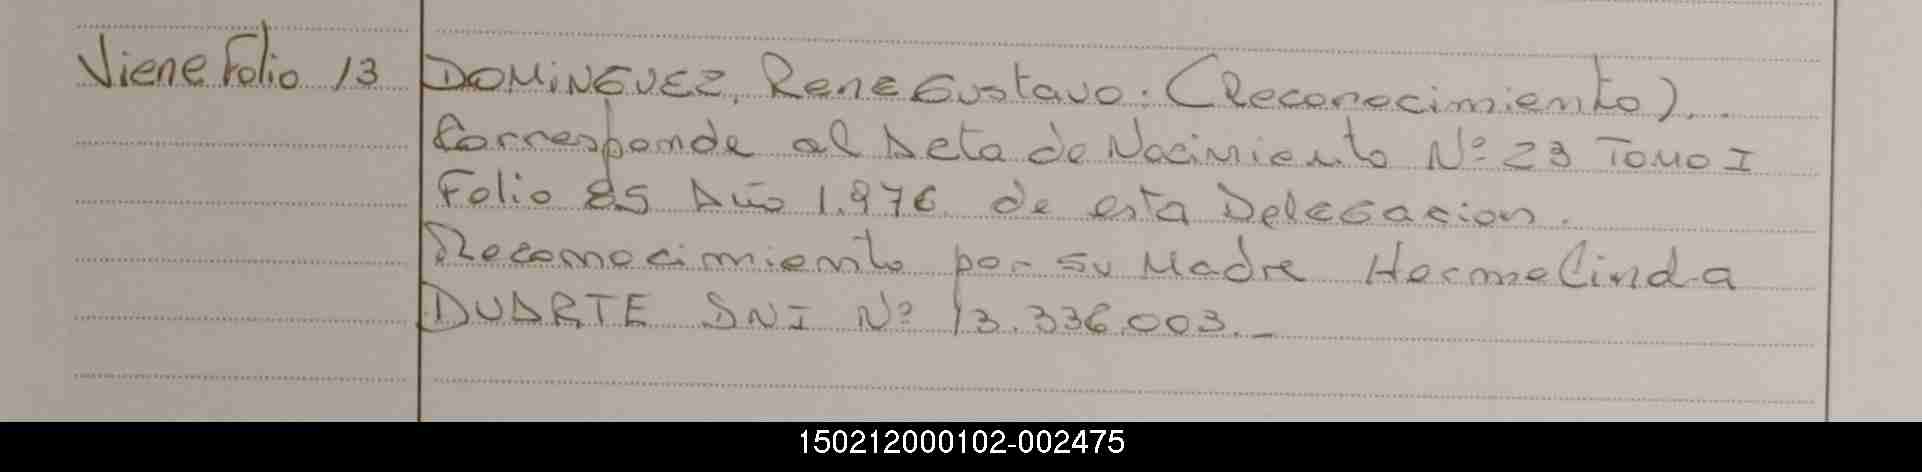 Viene Folio 13
DOMINGUEZ, Rene Gustavo. (Reconocimiento)...
Corresponde al Acta de Nacimiento Nº 23 Tomo I
Folio 85 Año 1.976 de esta Delegacion.
Reconocimiento por su Madre Hermelinda
DUARTE DNI Nº 13.336.003._
150212000102-002475